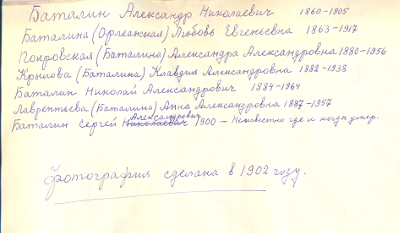 Баталин Александр Николаевич 1860-1905
Баталина (Орлеанская) Любовь Евгеньевна 1863-1917
Покровская (Баталина) Александра Александровна 1880-1956
Крылова (Баталина) Клавдия Александровна 1882-1938
Баталин Николай Александрович 1884-1964
Лаврентьева (Баталина) Анна Александровна 1887-1957
Баталин Сергей Николаевич Александрович 1900 - Неизвестно где и когда умер.
Фотография сделана в 1902 году.